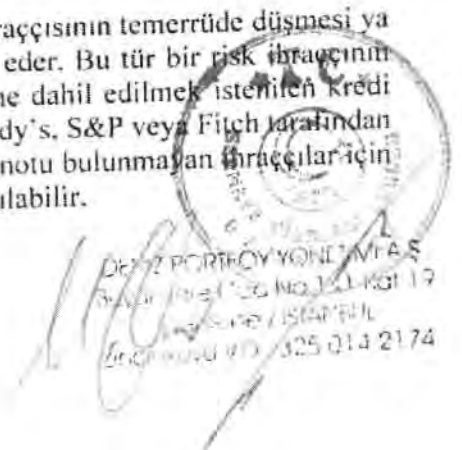 raççısının temerrüde düşmesi ya
eder. Bu tür bir risk ihraççının
ne dahil edilmek istenilen kredi
dy's, S&P veya Fitch tarafından
notu bulunmayan ihraççılar için
ılabilir.
DENİZ PORTFÖY YÖNETİMİ A.Ş
No 141 Kat 19
İSTANBUL
325 014 2174